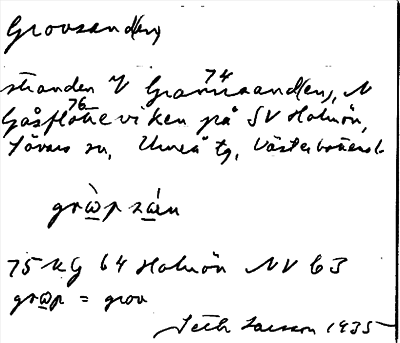 Grovsand(en)
stranden V Grannsand(en), N
74
Gåsflötteviken på SV Holmön,
76
Sävars sn, Umeå tg, Västerbotten
grò̱p sá̱n
75 KG 64 Holmön NV 63
gro̱p = grov
Seth Larsson 1935